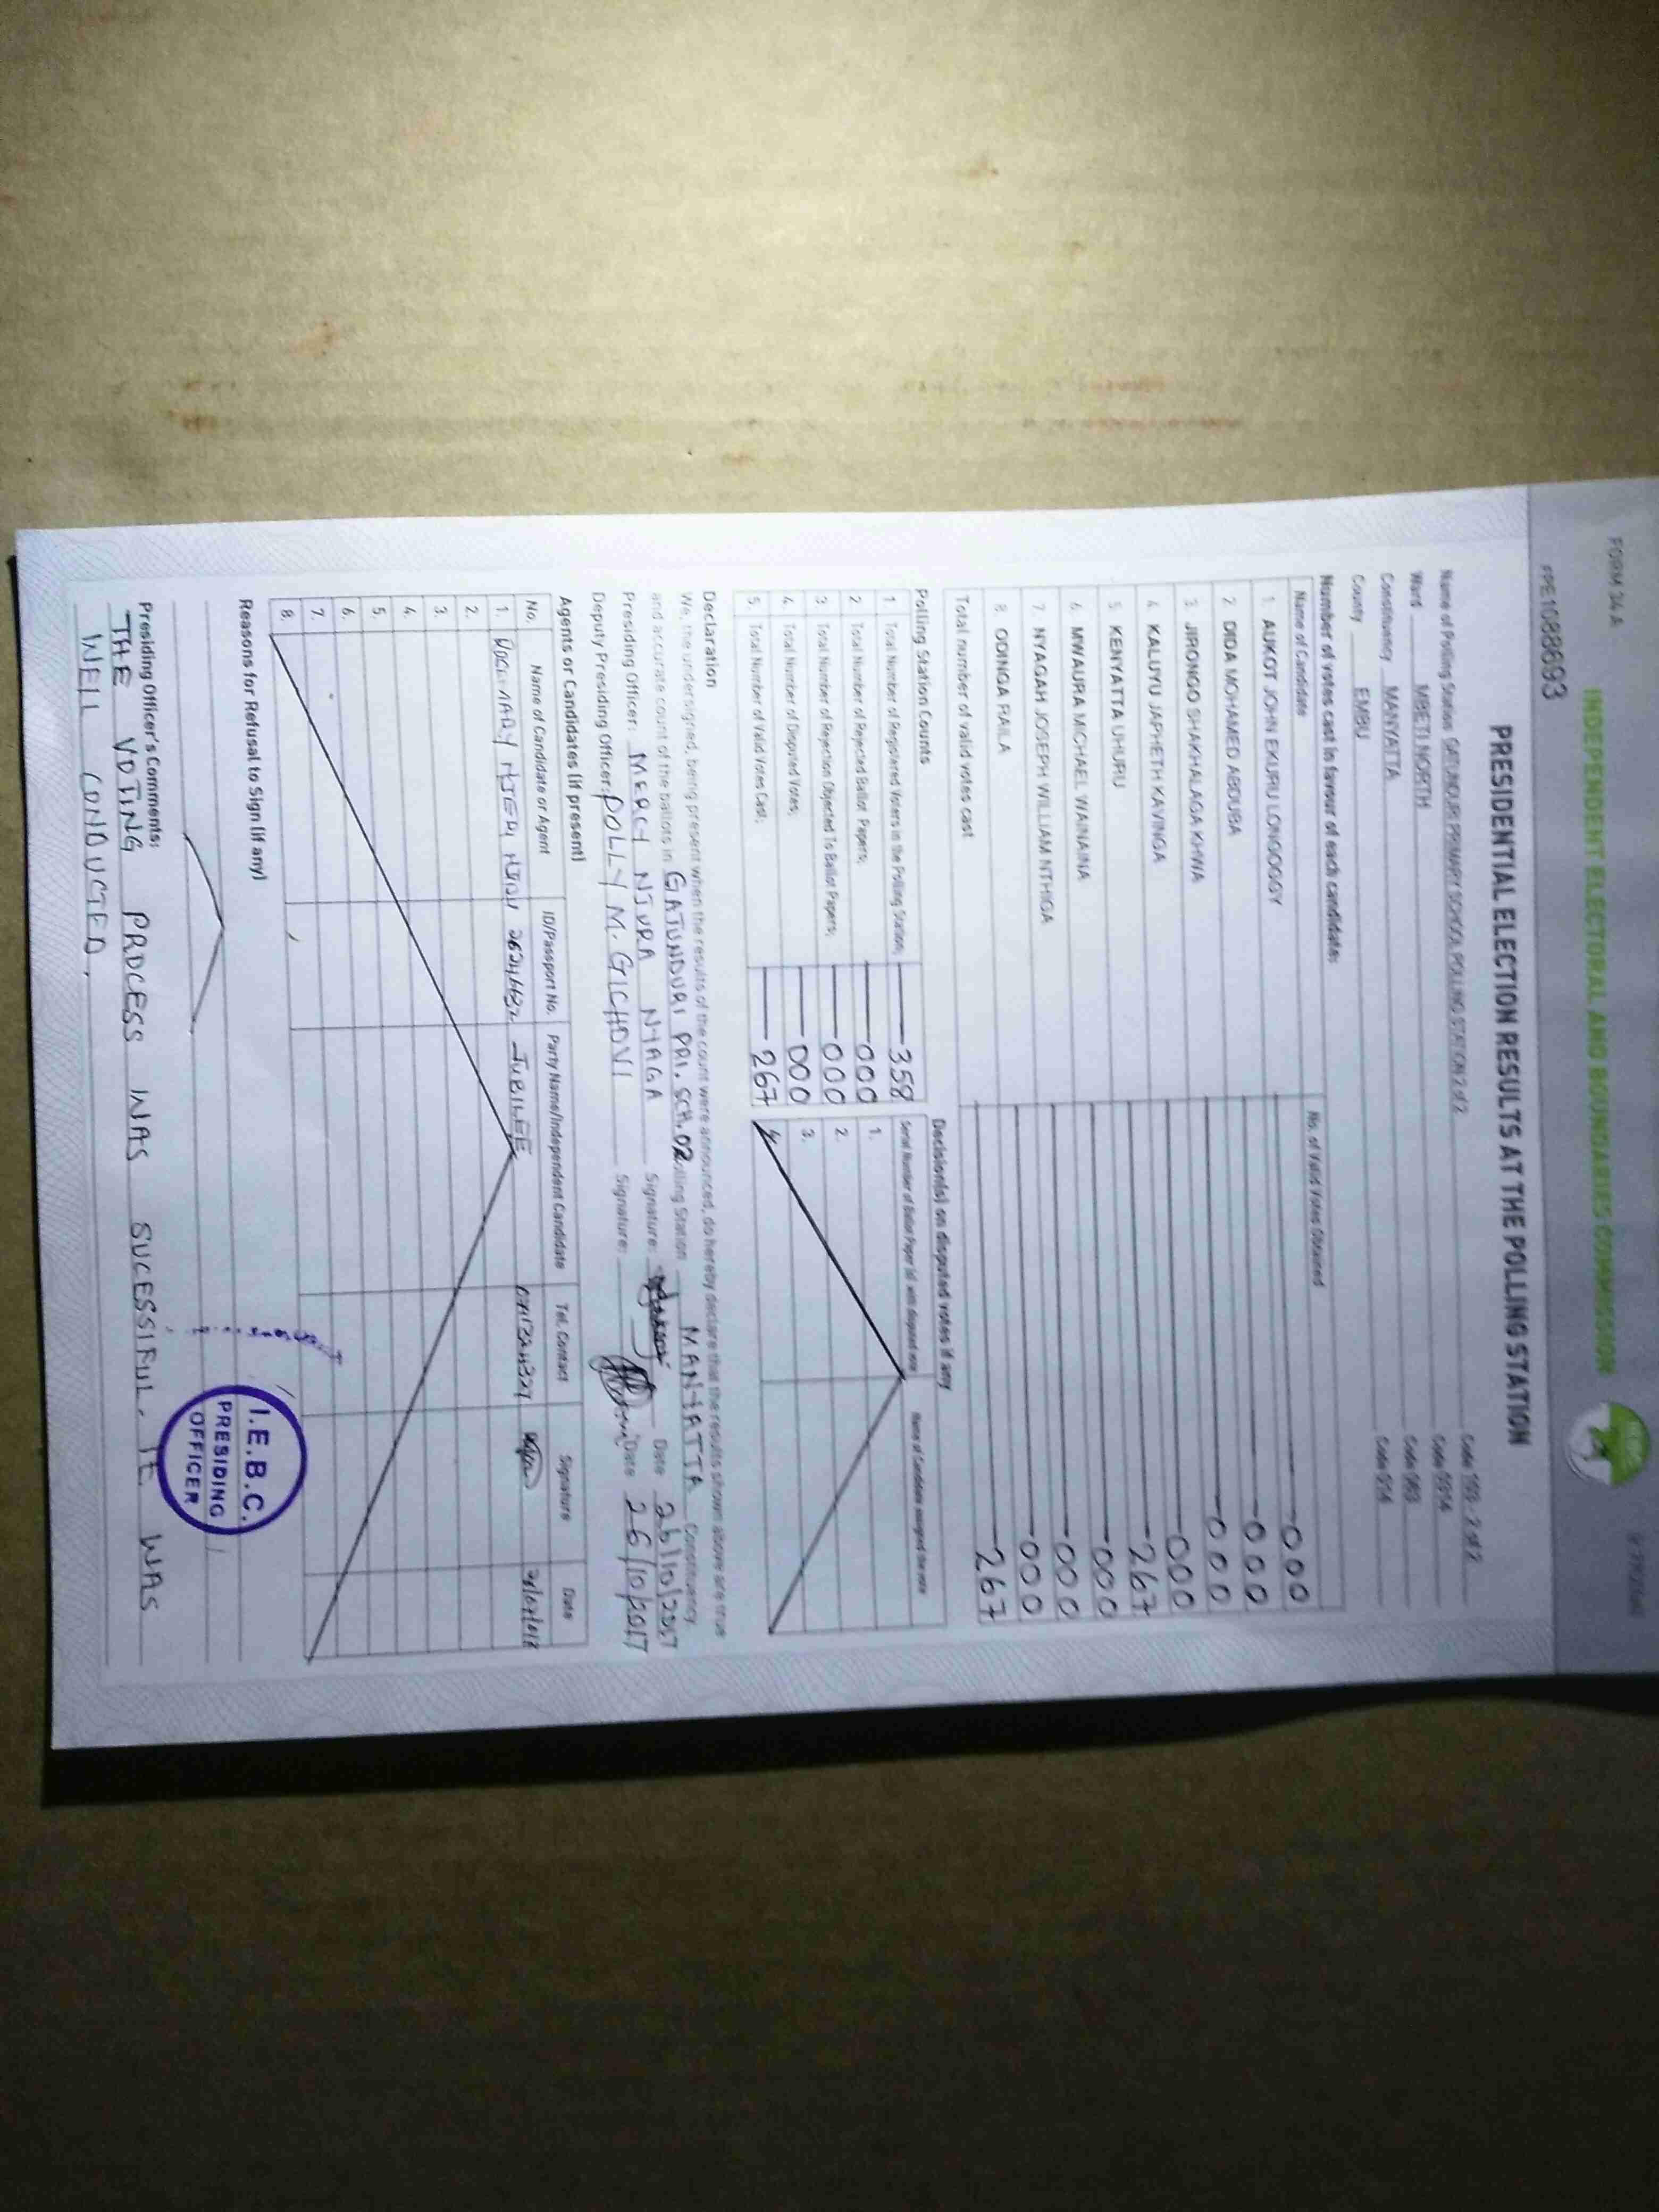 FORM 34 A
INDEPENDENT ELECTORAL AND BOUNDARIES COMMISSION
FPE1088693
PRESIDENTIAL ELECTION RESULTS AT THE POLLING STATION
Name of Polling Station GATUNDURI PRIMARY SCHOOL POLLING STATION 2 of 2 Code
Ward MBETI NORTH Code
Constituency MANYATTA Code
County EMBU Code 014
Number of votes cast in favour of each candidate:
Name of Candidate No. of Valid Votes Obtained
1 AUKOT JOHN EKURU LONGOGGY 000
2 DIDA MOHAMED ABDUBA 000
3 JIRONGO SHAKHALAGA KHWA 000
4 KALUYU JAPHETH KAVINGA 000
5 KENYATTA UHURU 267
6 MWAURA MICHAEL WAINAINA 000
7 NYAGAH JOSEPH WILLIAM NTHIGA 000
8 ODINGA RAILA 000
Total number of valid votes cast 267
Polling Station Counts
1 Total Number of Registered Voters in the Polling Station; 358
2 Total Number of Rejected Ballot Papers; 000
3 Total Number of Rejection Objected To Ballot Papers; 000
4. Total Number of Disputed Votes; 000
5. Total Number of Valid Votes Cast; 267
Decision(s) on disputed votes if any
Serial Number of Ballot Paper (s) with disputed vote Name of Candidate assigned the vote
1.
2.
3.
4.
Declaration
We, the undersigned, being present when the results of the count were announced, do hereby declare that the results shown above are true
and accurate count of the ballots in GATUNDURI PRI. SCH. 02 Polling Station MANYATTA Constituency.
Presiding Officer: MERCY NJURA NYAGA Signature: Date 26/10/2017
Deputy Presiding Officer: DOLLY M. GICHOVI Signature: Date 26/10/2017
Agents or Candidates (if present)
No. Name of Candidate or Agent ID/Passport No. Party Name/Independent Candidate Tel. Contact Signature Date
1. MARY NJERI JUBILEE
2.
3.
4.
5.
6.
7.
8.
Reasons for Refusal to Sign (if any)
Presiding Officer's Comments:
THE VOTING PROCESS WAS SUCESSIFUL. IT WAS
WELL CONDUCTED.
I.E.B.C.
PRESIDING
OFFICER